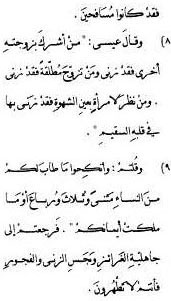 فقد كانوا مسافحين.
(٨) وقال عيسى: "من أشرك بزوجته
أخرى فقد زنى ومن تزوج مطلقة فقد زنى
. ومن نظر لامرأة بعين الشهوة فقد زنى بها
في قلبه السقيم".
(٩) وقلتم: "وانكحوا ما طاب لكم
من النساء مثنى وثلاث ورباع أو ما
ملكت أيمانكم". فرجعتم إلى
جاهلية الغرائز ونجس الزنى والفجور
فأنتم لا تطهرون.